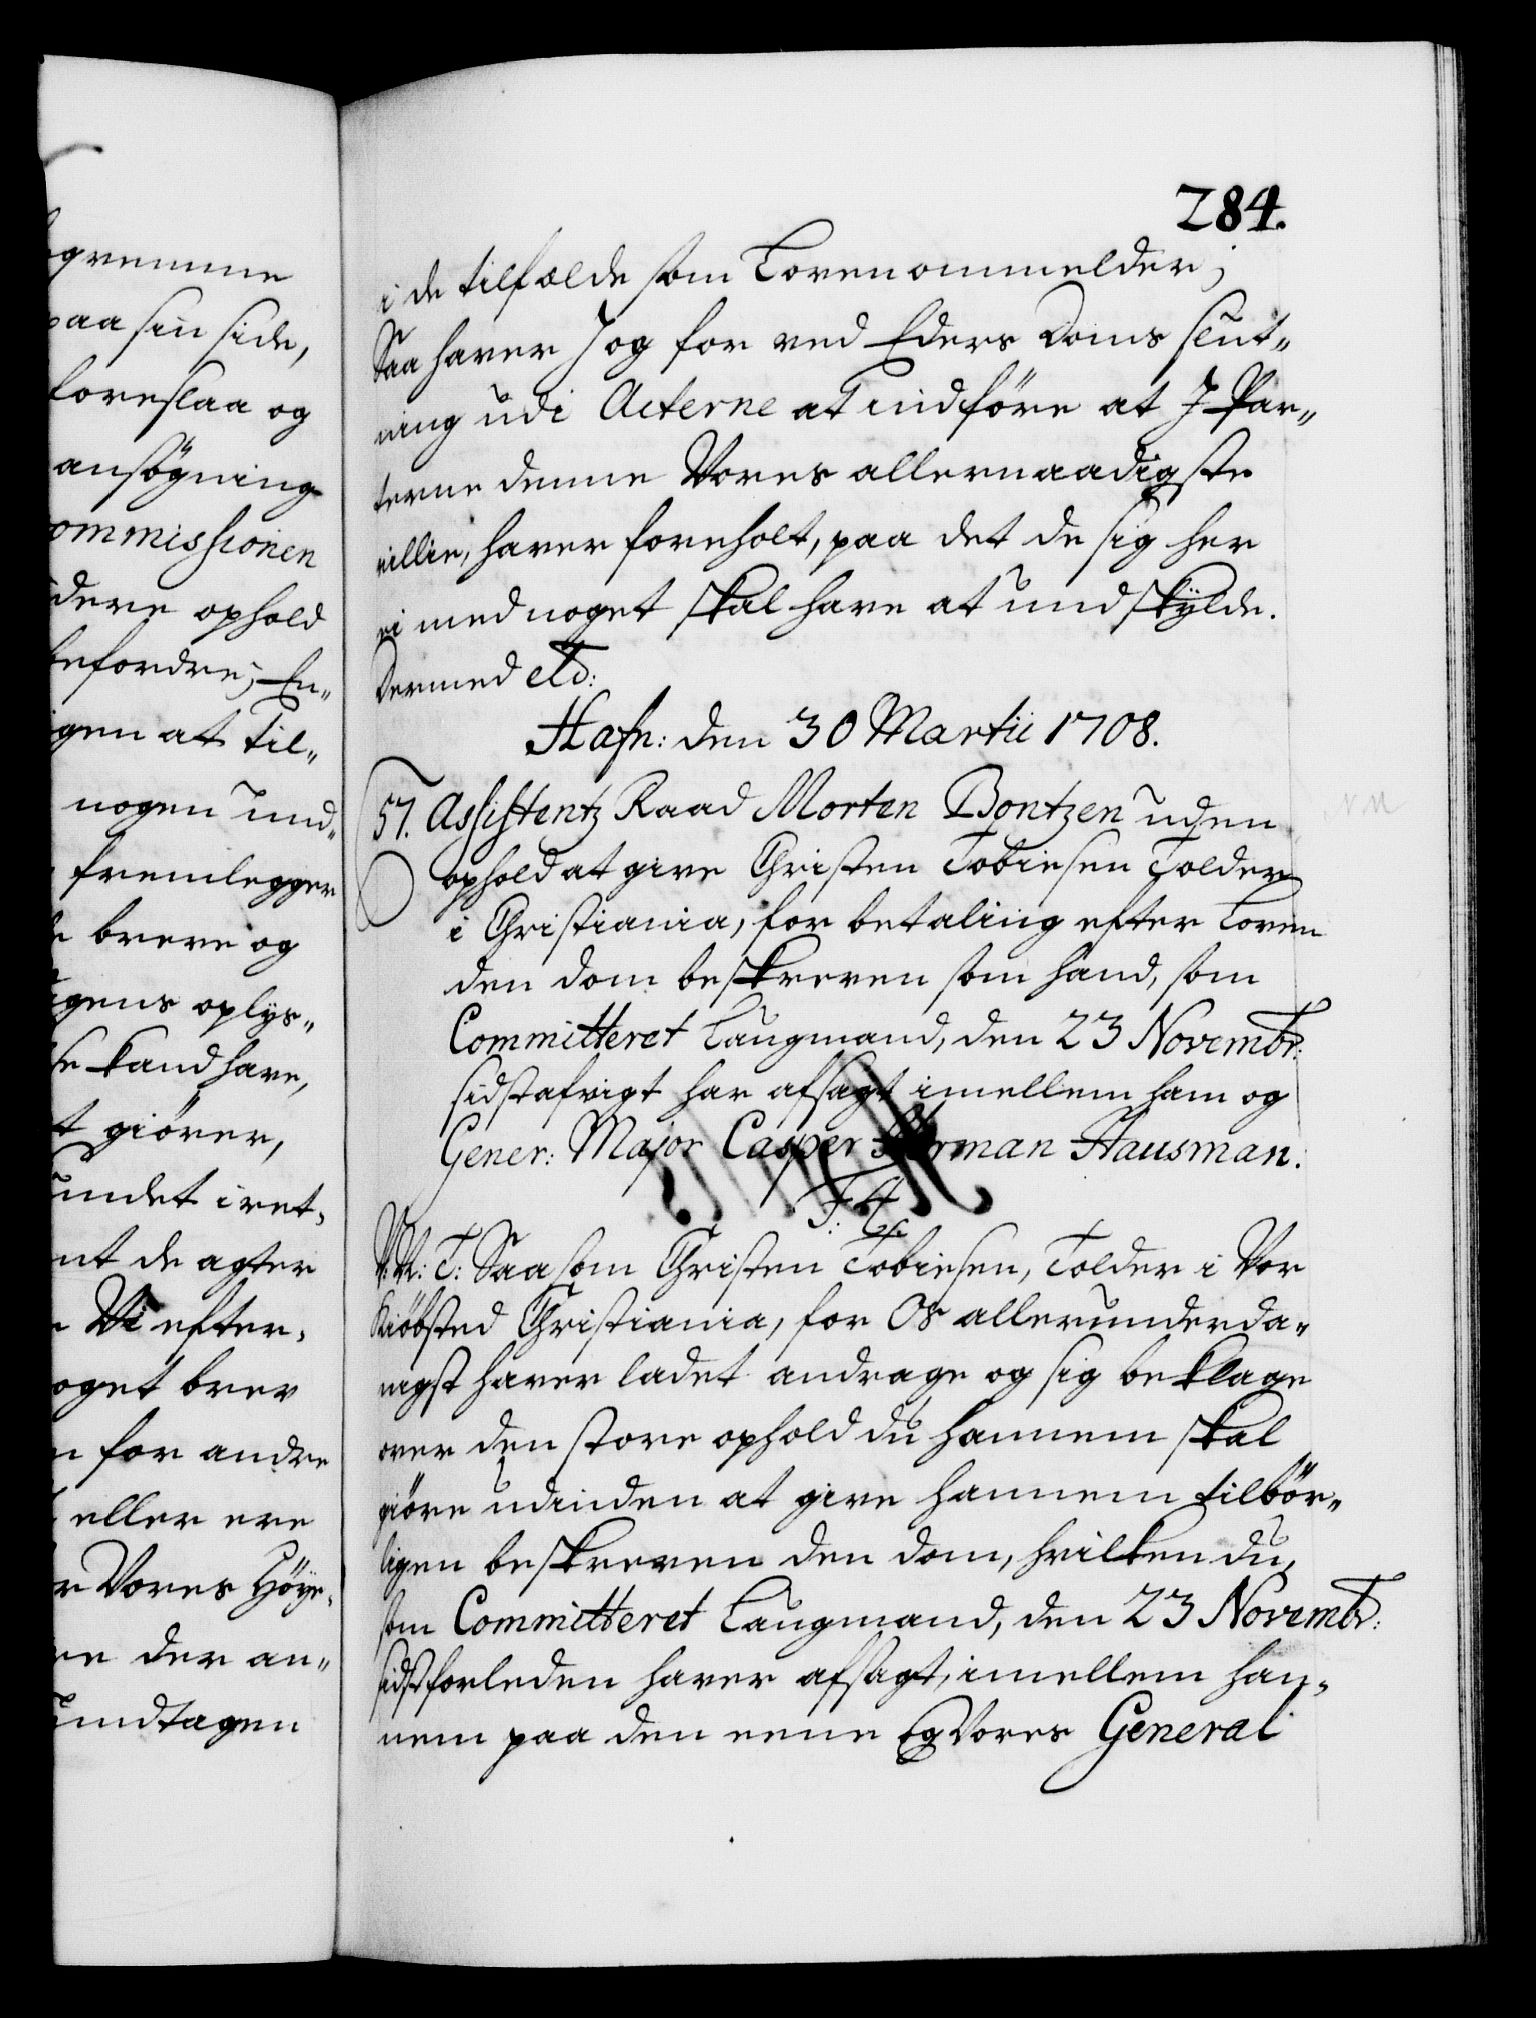 284.
i de tilfælde som Loven ommelder;
Saa haver I og for ved Eders Doms slut„
ning udi Acterne at indføre at I Par„
terne denne Vores allernaadigste
villie, haver foreholt, paa det de sig her
ei med noget skal have at undskylde.
Dermed etc:
Hafn: den 30 Martii 1708.
57. Assistentz Raad Morten Bontzen uden
ophold at give Christen Tobiesen Tolder
i Christiania, for betaling efter Loven
den dom beskreven som hand, som
Committeret Laugmand, den 23 Novembr:
sidstafvigt har afsagt imellem ham og
Gener: Major Casper Herman Hausman.
F: 4.
V: G: T: Saa som Christen Tobiesen, Tolder i Vor
Kiöbsted Christiania, for Os allerunderda„
nigst haver ladet andrage og sig beklage
over den store ophold du hannem skal
giöre udinden at give hannem tilbör„
ligen beskreven den dom, hvilken du,
som Committeret Laugmand, den 23 Novembr:
sidstforleden haver afsagt, imellem han„
nem paa den eene og Vores General
gremme
paa sin side,
foreslaa og
ansøgning
ommissionen
dere ophold
befordre; En„
gen at til„
nogen und„
fremlegger
breve og
gens oplys„
se kand have,
t giörer,
undet i ret„
nt de agter
Vi efter„
oget brev
for andre
eller ere
r Vores Höye„
re der an„
undtagen